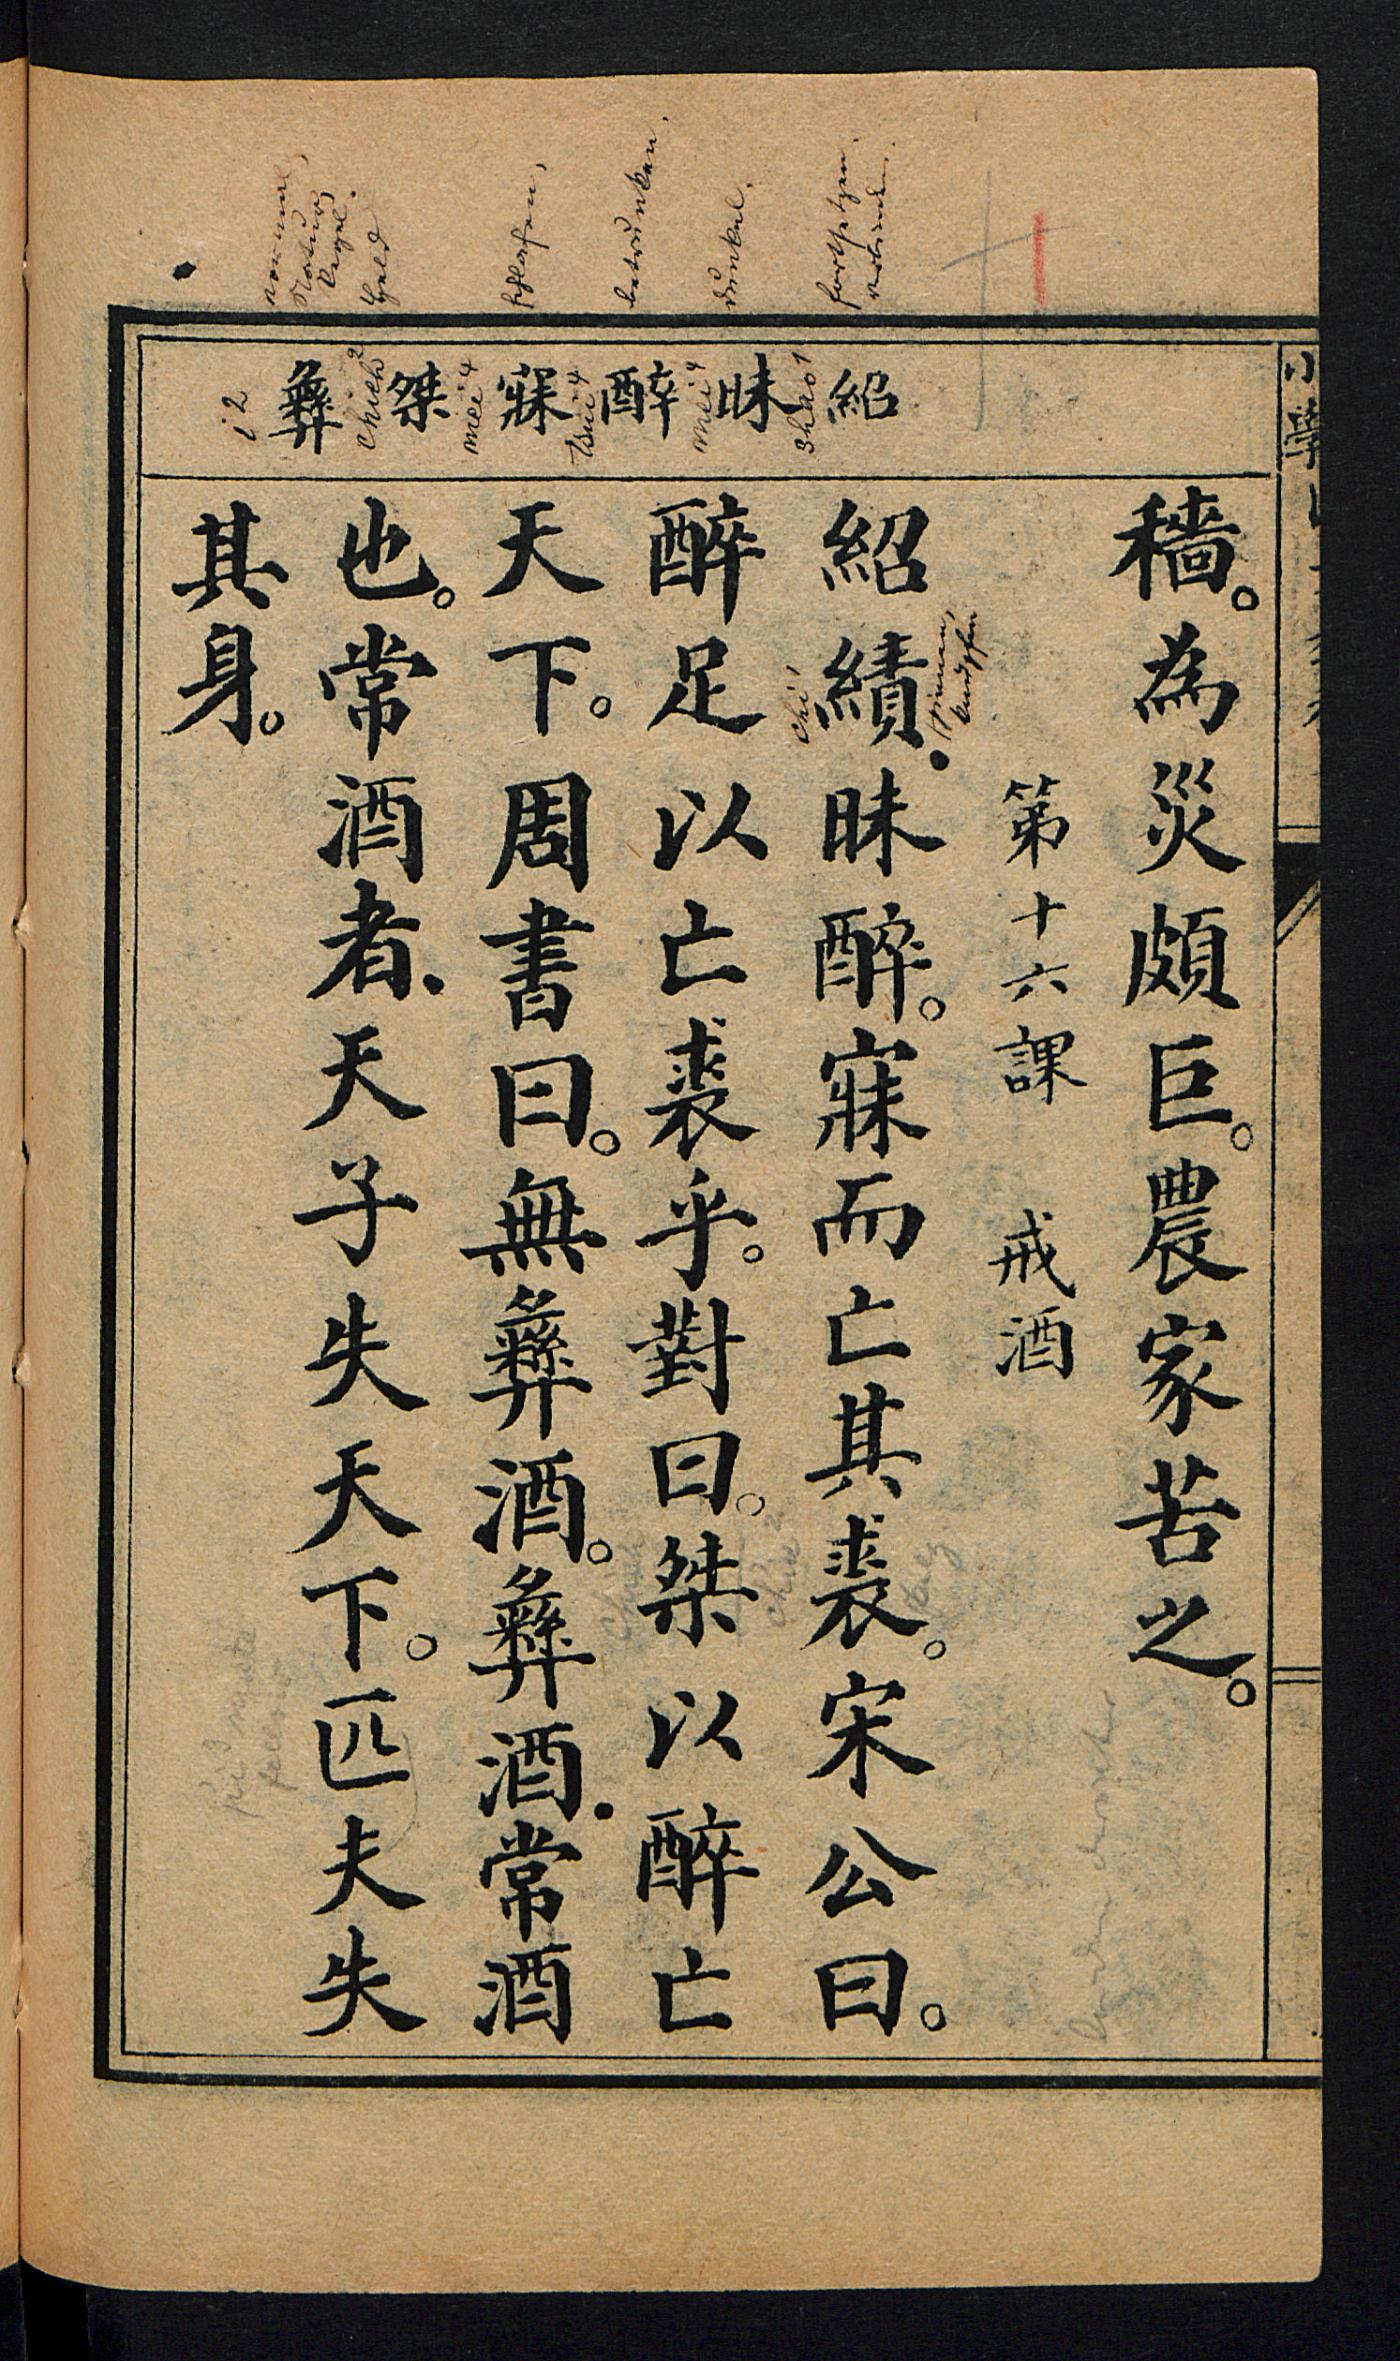 小學
穡。為災頗巨。農家苦之。
第十六課 戒酒
紹 昧 醉 寐 桀 彝
紹績．昧醉。寐而亡其裘。宋公曰。
醉足以亡裘乎。對曰。桀以醉亡
天下。周書曰。無彝酒。彝酒．常酒
也。常酒者．天子失天下。匹夫失
其身。
shao1
mei4
tsui4
mei4
chieh2
i2
chi1
fortsetzen,
dunkel.
betrunken,
schlafen,
Held
Natur,
Regel.
normal,